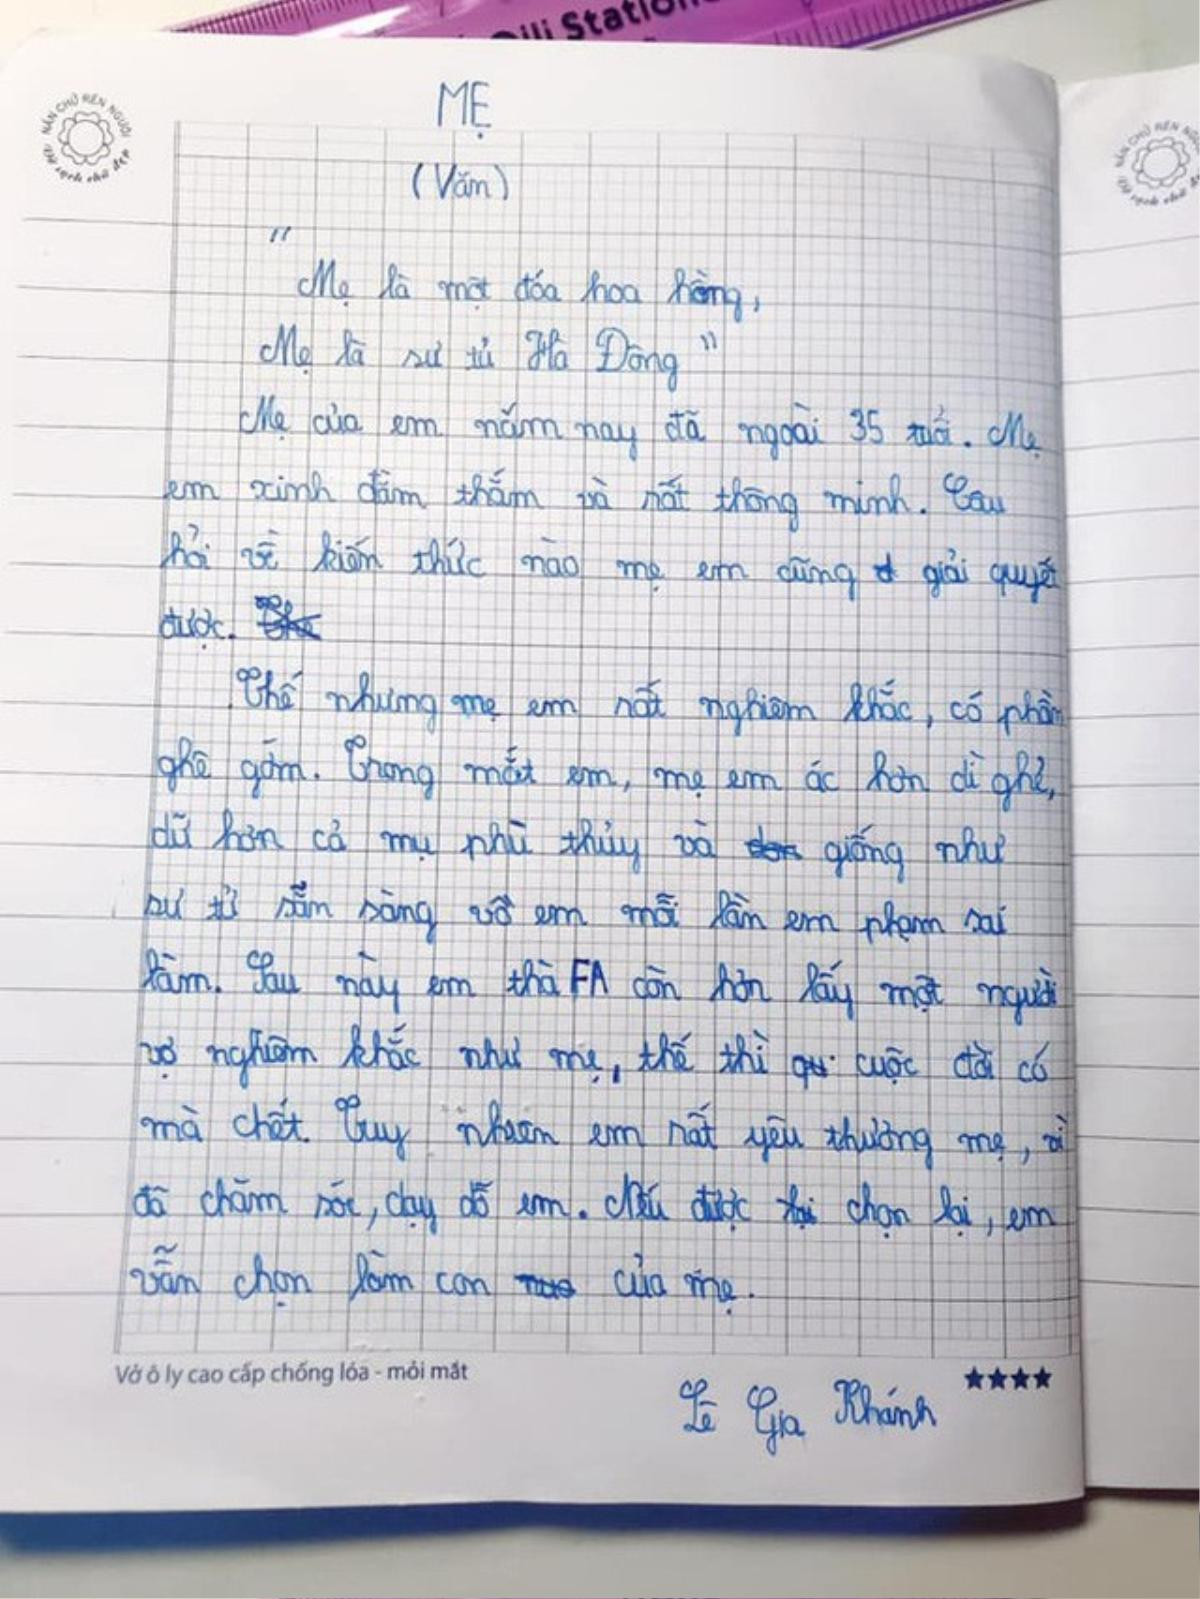 Dili Station
NẮN CHỮ RÈN NGƯỜI
NẮN CHỮ RÈN NGƯỜI
MẸ
(Văn)
"
Mẹ là một đóa hoa hồng,
Mẹ là sư tử Hà Đông"
Mẹ của em năm nay đã ngoài 35 tuổi. Mẹ
em xinh đằm thắm và rất thông minh. Câu
hỏi về kiến thức nào mẹ em cũng giải quyết
được.
Thế nhưng mẹ em rất nghiêm khắc, có phần
ghê gớm. Trong mắt em, mẹ em ác hơn dì ghẻ,
dữ hơn cả mụ phù thủy và giống như
sư tử sẵn sàng vồ em mỗi lần em phạm sai
lầm. Sau này em thà FA còn hơn lấy một người
vợ nghiêm khắc như mẹ, thế thì cuộc đời có
mà chết. Tuy nhiên em rất yêu thương mẹ, vì
đã chăm sóc, dạy dỗ em. Nếu được chọn lại, em
vẫn chọn làm con của mẹ.
Vở ô ly cao cấp chống lóa - mỏi mắt
Lê Gia Khánh